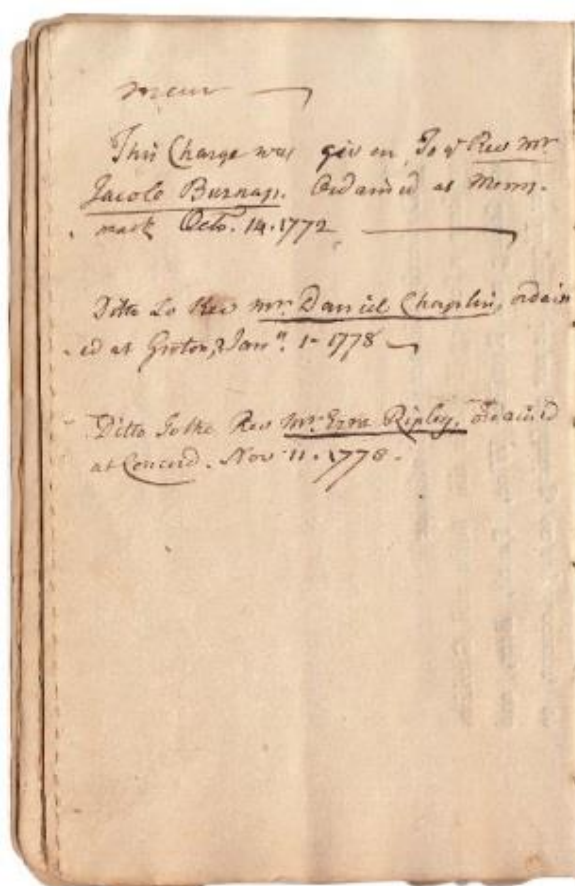 This Charge was given To ye Rev Mr
Jacob Burnap. Ordained at Merri-
mack Octo. 14. 1772
Ditto to Rev Mr. Daniel Chaplin, ordain
ed at Groton, Jany. 1- 1778
Ditto To the Rev Mr. Ezra Ripley. ordained
at Concord. Nov 11. 1778.